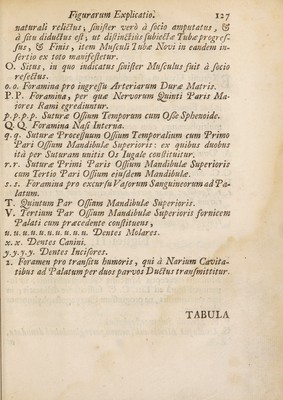 Figurarum Explicatio. 127
naturali relictus; sinister verò à socio amputatus, &
à situ diductus est; ut distinctiùs subiectæ Tubæ progres-
sus, & Finis, item Musculi Tubæ Novi in eandem in-
sertio ex toto manifestetur.
O. Situs, in quo indicatus sinister Musculus suit à socio
resectus.
o.o. Foramina pro ingressu Arteriarum Duræ Matris.
P.P. Foramina, per quæ Nervorum Quinti Paris Ma-
iores Rami egrediuntur.
p.p.p.p. Suturæ Ossium Temporum cum Osse Sphenoide.
Q.Q. Foramina Nasi Interna.
q.q. Suturæ Processuum Ossium Temporalium cum Primo
Pari Ossium Mandibulæ Superioris: ex quibus duobus
ità per Suturam unitis Os Iugale constituitur.
r.r. Suturæ Primi Paris Ossium Mandibulæ Superioris
cum Tertio Pari Ossium eiusdem Mandibulæ.
s.s. Foramina pro excursu Vasorum Sanguineorum ad Pa-
latum.
T. Quintum Par Ossium Mandibulæ Superioris.
V. Tertium Par Ossium Mandibulæ Superioris fornicem
Palati cum præcedente constituens,
u.u.u.u.u.u.u.u.u. Dentes Molares.
x.x. Dentes Canini.
y.y.y.y. Dentes Incisores.
z. Foramen pro transitu humoris, qui à Narium Cavita-
tibus ad Palatum per duos parvos Ductus transmittitur.
TABULA